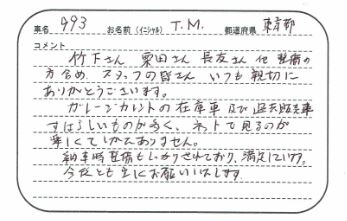 車名 993 お名前(イニシャル) T.M. 都道府県 東京都
コメント
竹下さん 栗田さん 長友さん 他 整備の
方含め、スタッフの皆さん いつも親切に
ありがとうございます。
ガレージカレントの在庫車 及び 過去販売車
すばらしいものが多く、ネットで見るのが
楽しくてしかたありません。
納車時整備もしっかりされており、満足しています。
今後とも宜しくお願いいたします。